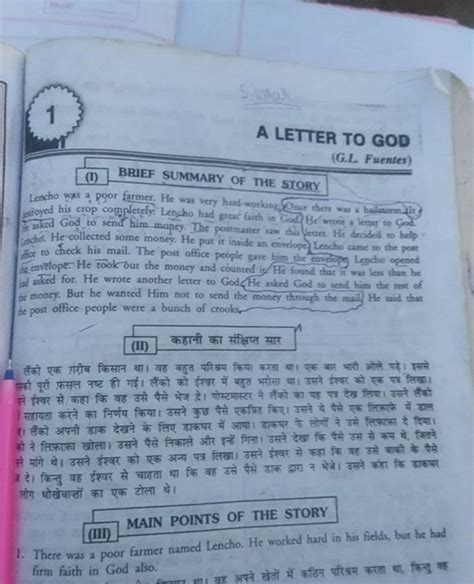 1
A LETTER TO GOD
(G.L. Fuentes)
(I) BRIEF SUMMARY OF THE STORY
Lencho was a poor farmer. He was very hard-working. Once there was a hailstorm. It
destroyed his crop completely. Lencho had great faith in God. He wrote a letter to God.
He asked God to send him money. The postmaster saw this letter. He decided to help
Lencho. He collected some money. He put it inside an envelope. Lencho came to the post
office to check his mail. The post office people gave him the envelope. Lencho opened
the envelope. He took out the money and counted it. He found that it was less than he
had asked for. He wrote another letter to God. He asked God to send him the rest of
the money. But he wanted Him not to send the money through the mail. He said that
the post office people were a bunch of crooks.
(II) कहानी का संक्षिप्त सार
लैंको एक ग़रीब किसान था। वह बहुत परिश्रम किया करता था। एक बार भारी ओले पड़े। इससे
पूरी फ़सल नष्ट हो गई। लैंको को ईश्वर में बहुत भरोसा था। उसने ईश्वर को एक पत्र लिखा।
ईश्वर से कहा कि वह उसे पैसे भेज दे। पोस्टमास्टर ने लैंको का यह पत्र देख लिया। उसने लैंको
सहायता करने का निर्णय किया। उसने कुछ पैसे एकत्रित किए। उसने ये पैसे एक लिफ़ाफ़े में डाल
लैंको अपनी डाक देखने के लिए डाकघर में आया। डाकघर के लोगों ने उसे लिफ़ाफ़ा दे दिया।
ने लिफ़ाफ़ा खोला। उसने पैसे निकाले और इन्हें गिना। उसने देखा कि पैसे उस से कम थे, जितने
ने मांगे थे। उसने ईश्वर को एक अन्य पत्र लिखा। उसने ईश्वर से कहा कि वह उसे बाकी के पैसे
दे। किन्तु वह ईश्वर से चाहता था कि वह उसे पैसे डाक द्वारा न भेजे। उसने कहा कि डाकघर
लोग धोखेबाज़ों का एक टोला थे।
(III) MAIN POINTS OF THE STORY
1. There was a poor farmer named Lencho. He worked hard in his fields, but he had
firm faith in God also.
था। वह अपने खेतों में कठिन परिश्रम करता था, किन्तु वह